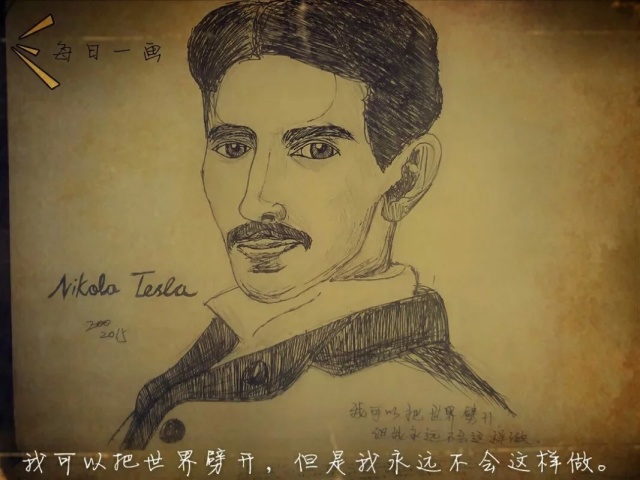 每日一画
Nikola Tesla
2015
我可以把世界劈开
但我永远不会这样做.
我可以把世界劈开，但是我永远不会这样做。